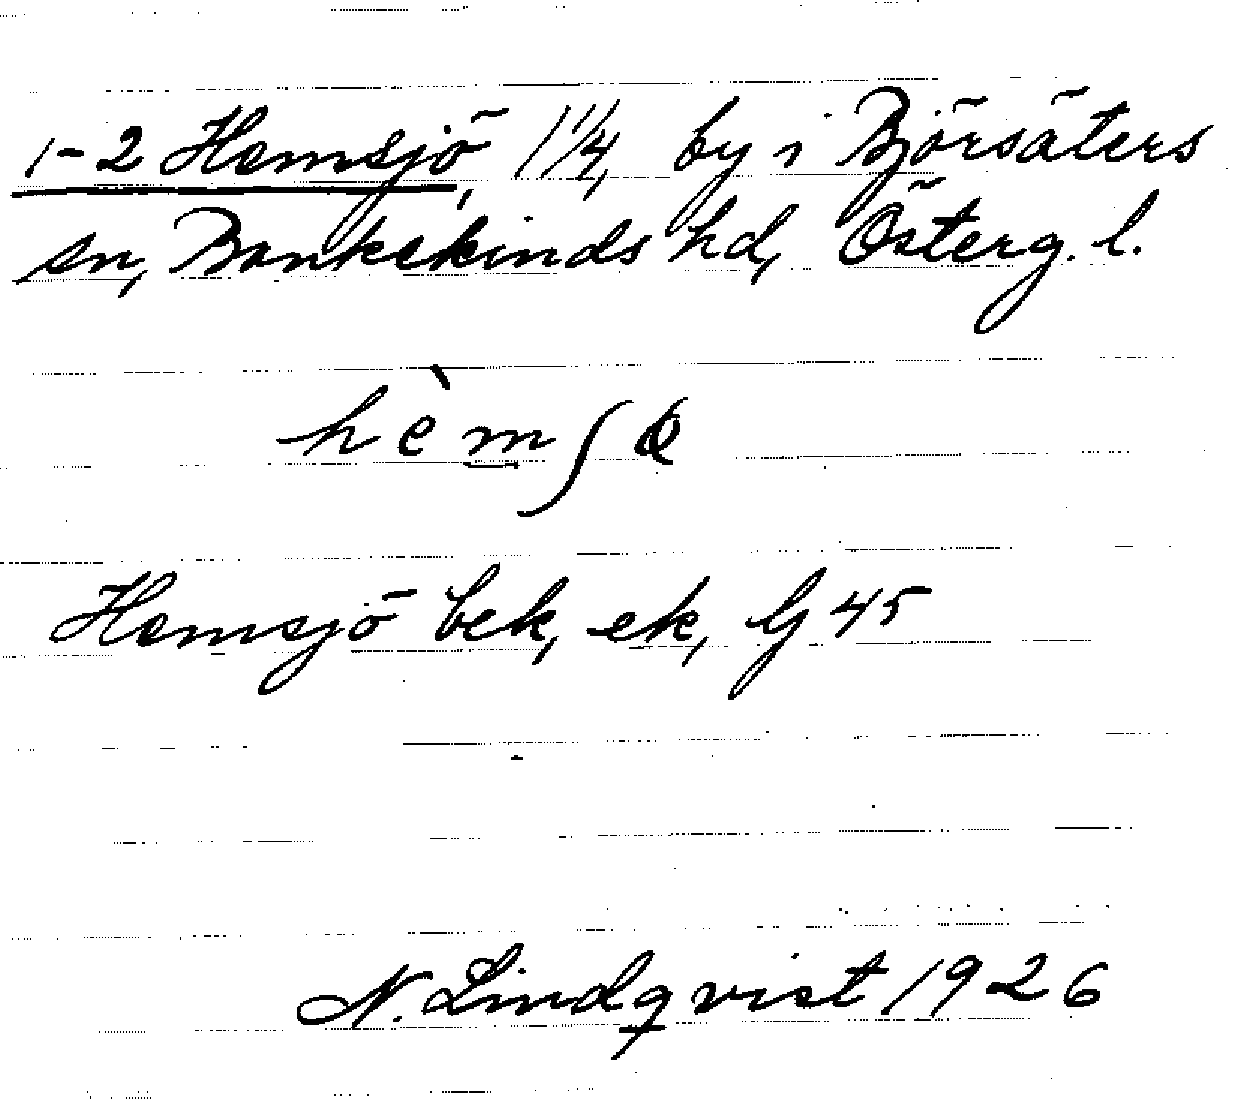 1-2 Hemsjö, 1 1/4, by i Björsäters
sn, Bankekinds hd, Österg. l.
hèmʃö
Hemsjö bek, ek, Gj 45
N. Lindqvist 1926